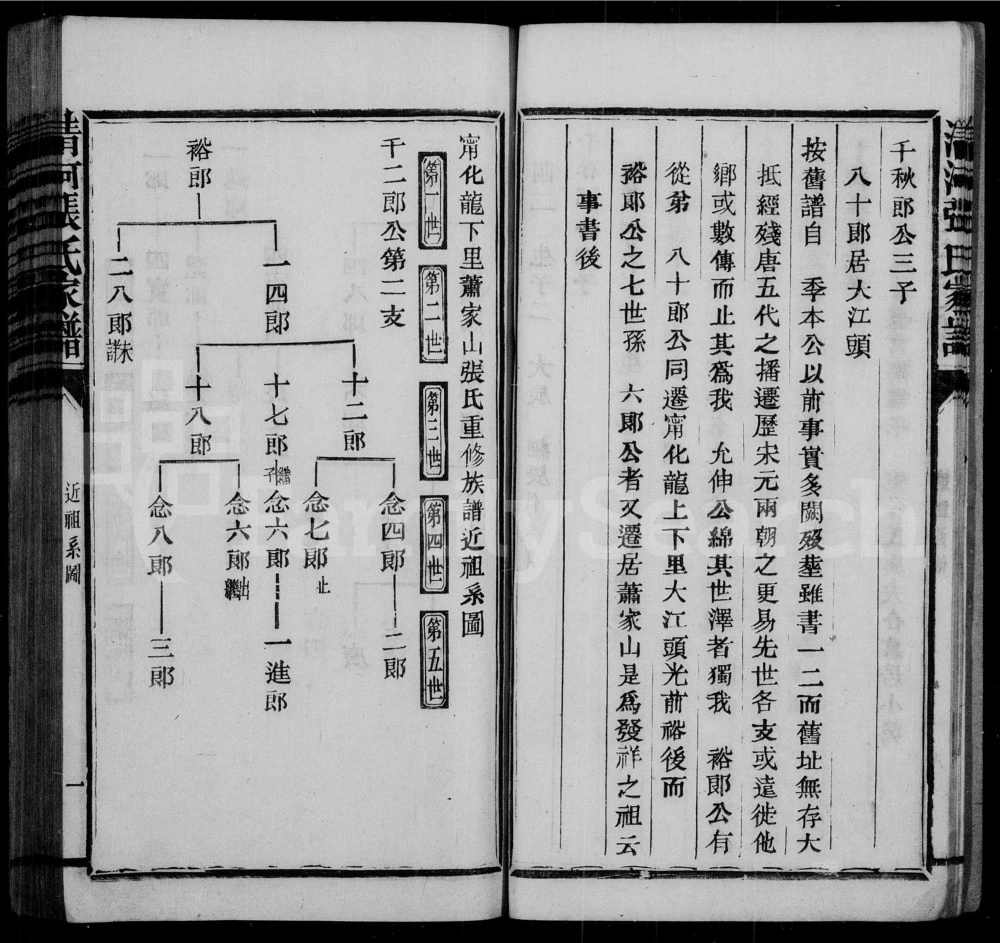 千秋郎公三子
八十郎居大江頭
按舊譜自 季本公以前事實多闕殁塟雖書一二而舊址無存大
抵經殘唐五代之播遷歷宋元兩朝之更易先世各支或遠徙他
鄉或數傳而止其爲我 允伸公綿其世澤者獨我 裕郎公有
從弟 八十郎公同遷甯化龍上下里大江頭光前裕後而
裕郎公之七世孫 六郎公者又遷居蕭家山是爲發祥之祖云
事書後
甯化龍下里蕭家山張氏重修族譜近祖系圖
第一世
第二世
第三世
第四世
第五世
千二郎公第二支
裕郎
一四郎
二八郎 未詳
十二郎
十七郎 繼子
十八郎
念四郎
念七郎 止
念六郎
念六郎 出繼
念八郎
二郎
一進郎
三郎
清河張氏家譜
近祖系圖
一
清河張氏家譜
FamilySearch